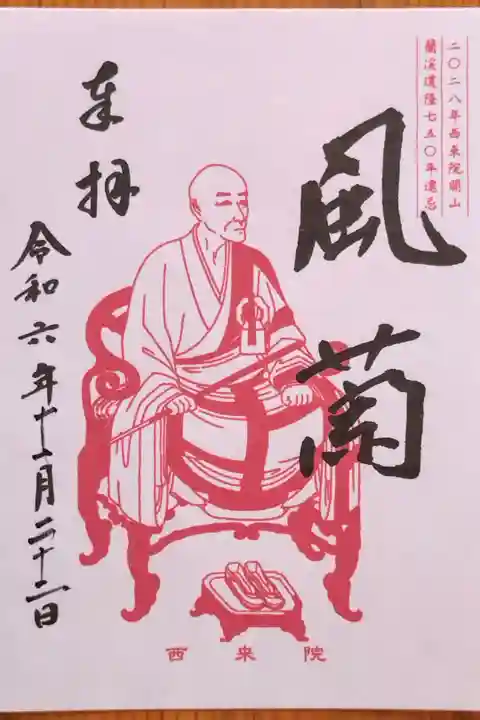 二〇二八年西来院開山
蘭渓道隆七五〇年遠忌
風
蘭
奉拝
令和六年十一月二十二日
西来院